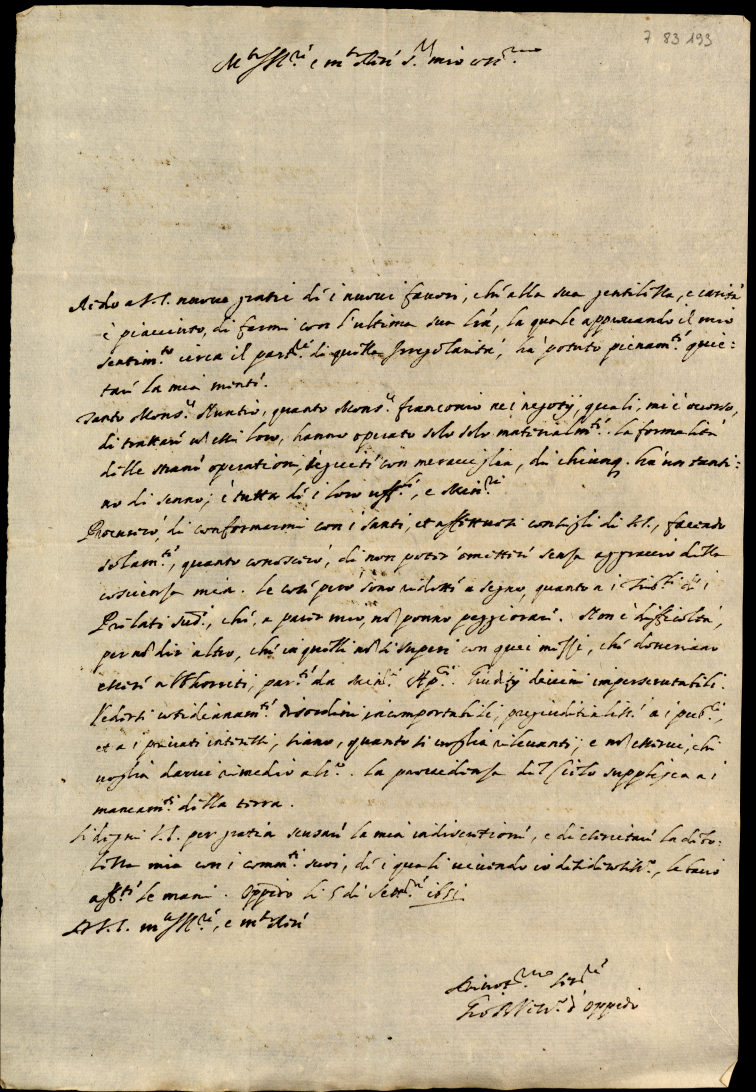 7 83 193
M.to Ill.re e m.to Rev. S.r mio oss.mo
Rendo a V.S. nuove gratie di i nuovi favori, che alla sua gentilezza, e carità
è piacciuto, di farmi con l'ultima sua l'ra, la quale approvando il mio
sentim.to circa il part.re di quella Irregolarità, ha potuto pienam.te quie=
tare la mia mente.
Tanto Mons.r Nuntio, quanto Mons.r franconio nei negotij, quali, mi è occorso,
di trattare con essi loro, hanno operato solo solo materialm.te. la formalità
delle strane operationi, eseguite con meraviglia, di chiunq. ha un tanti=
no di senno, è tutta di i loro uff.li, e Min.ri
Procurerò, di conformarmi con i santi, et affettuosi consigli di V.S., facendo
solam.te, quanto conoscerò, di non poter omettere senza aggravio della
coscienza mia. Le cose però sono ridotte a segno, quanto a i di i
Prelati, che, a parer mio, non ponno peggiorare. Non è difficoltà,
per non dir altro, che in quelle non si superi con quei mezzi, che doveriano
essere abhorriti, part.te da Ap.ci. Giuditij divini imperscrutabili.
Vedersi cotidianam.te disordini incomportabili, pregiuditialiss.i a i pub.ci,
et a i privati interessi, siano, quanto si voglia rilevanti, e non esservi, chi
voglia darvi rimedio alc.o. La providenza del Cielo supplisca a i
mancam.ti della terra.
Si degni V.S. per gratia scusare la mia indiscretione, e di esercitare la debo=
lezza mia con i comm.ti suoi, di i quali vivendo io desiderosiss.o, le bacio
aff.te le mani. Oppido li 5 di Sett.re 1651.
Di V.S. m.to Ill.re, e m.to Rev.
Devot.mo Ser.re
Gio B Vesc.o d'Oppido